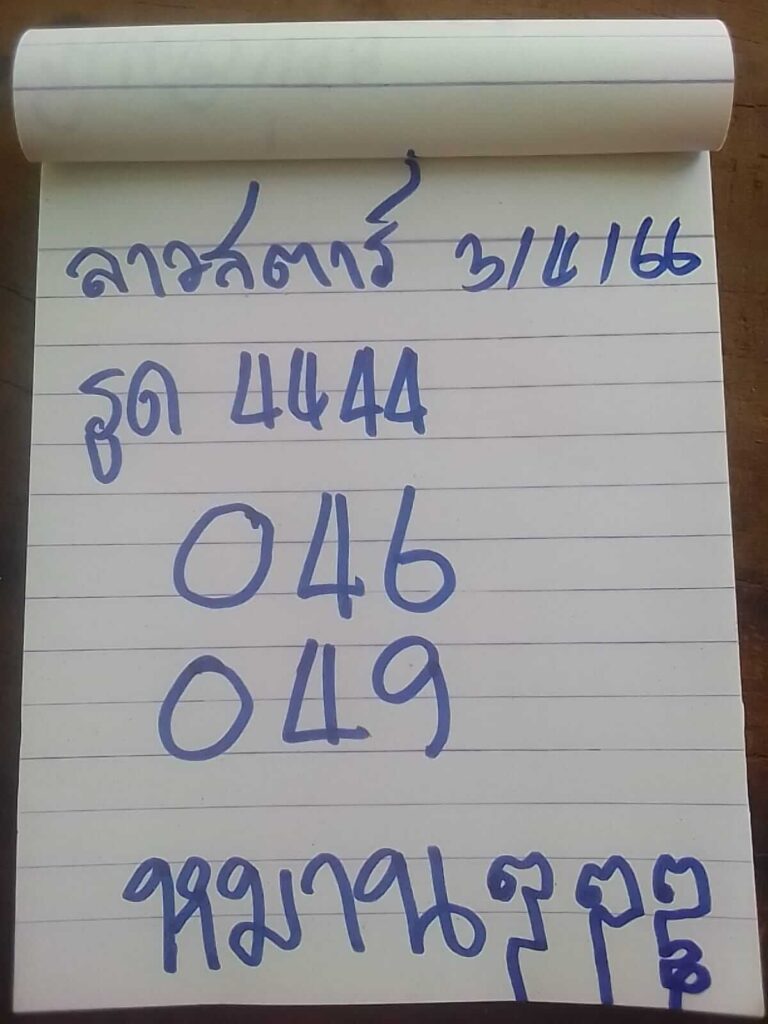 ลาวสตาร์ 3/4/66
รูด 4444
046
049
หมาน